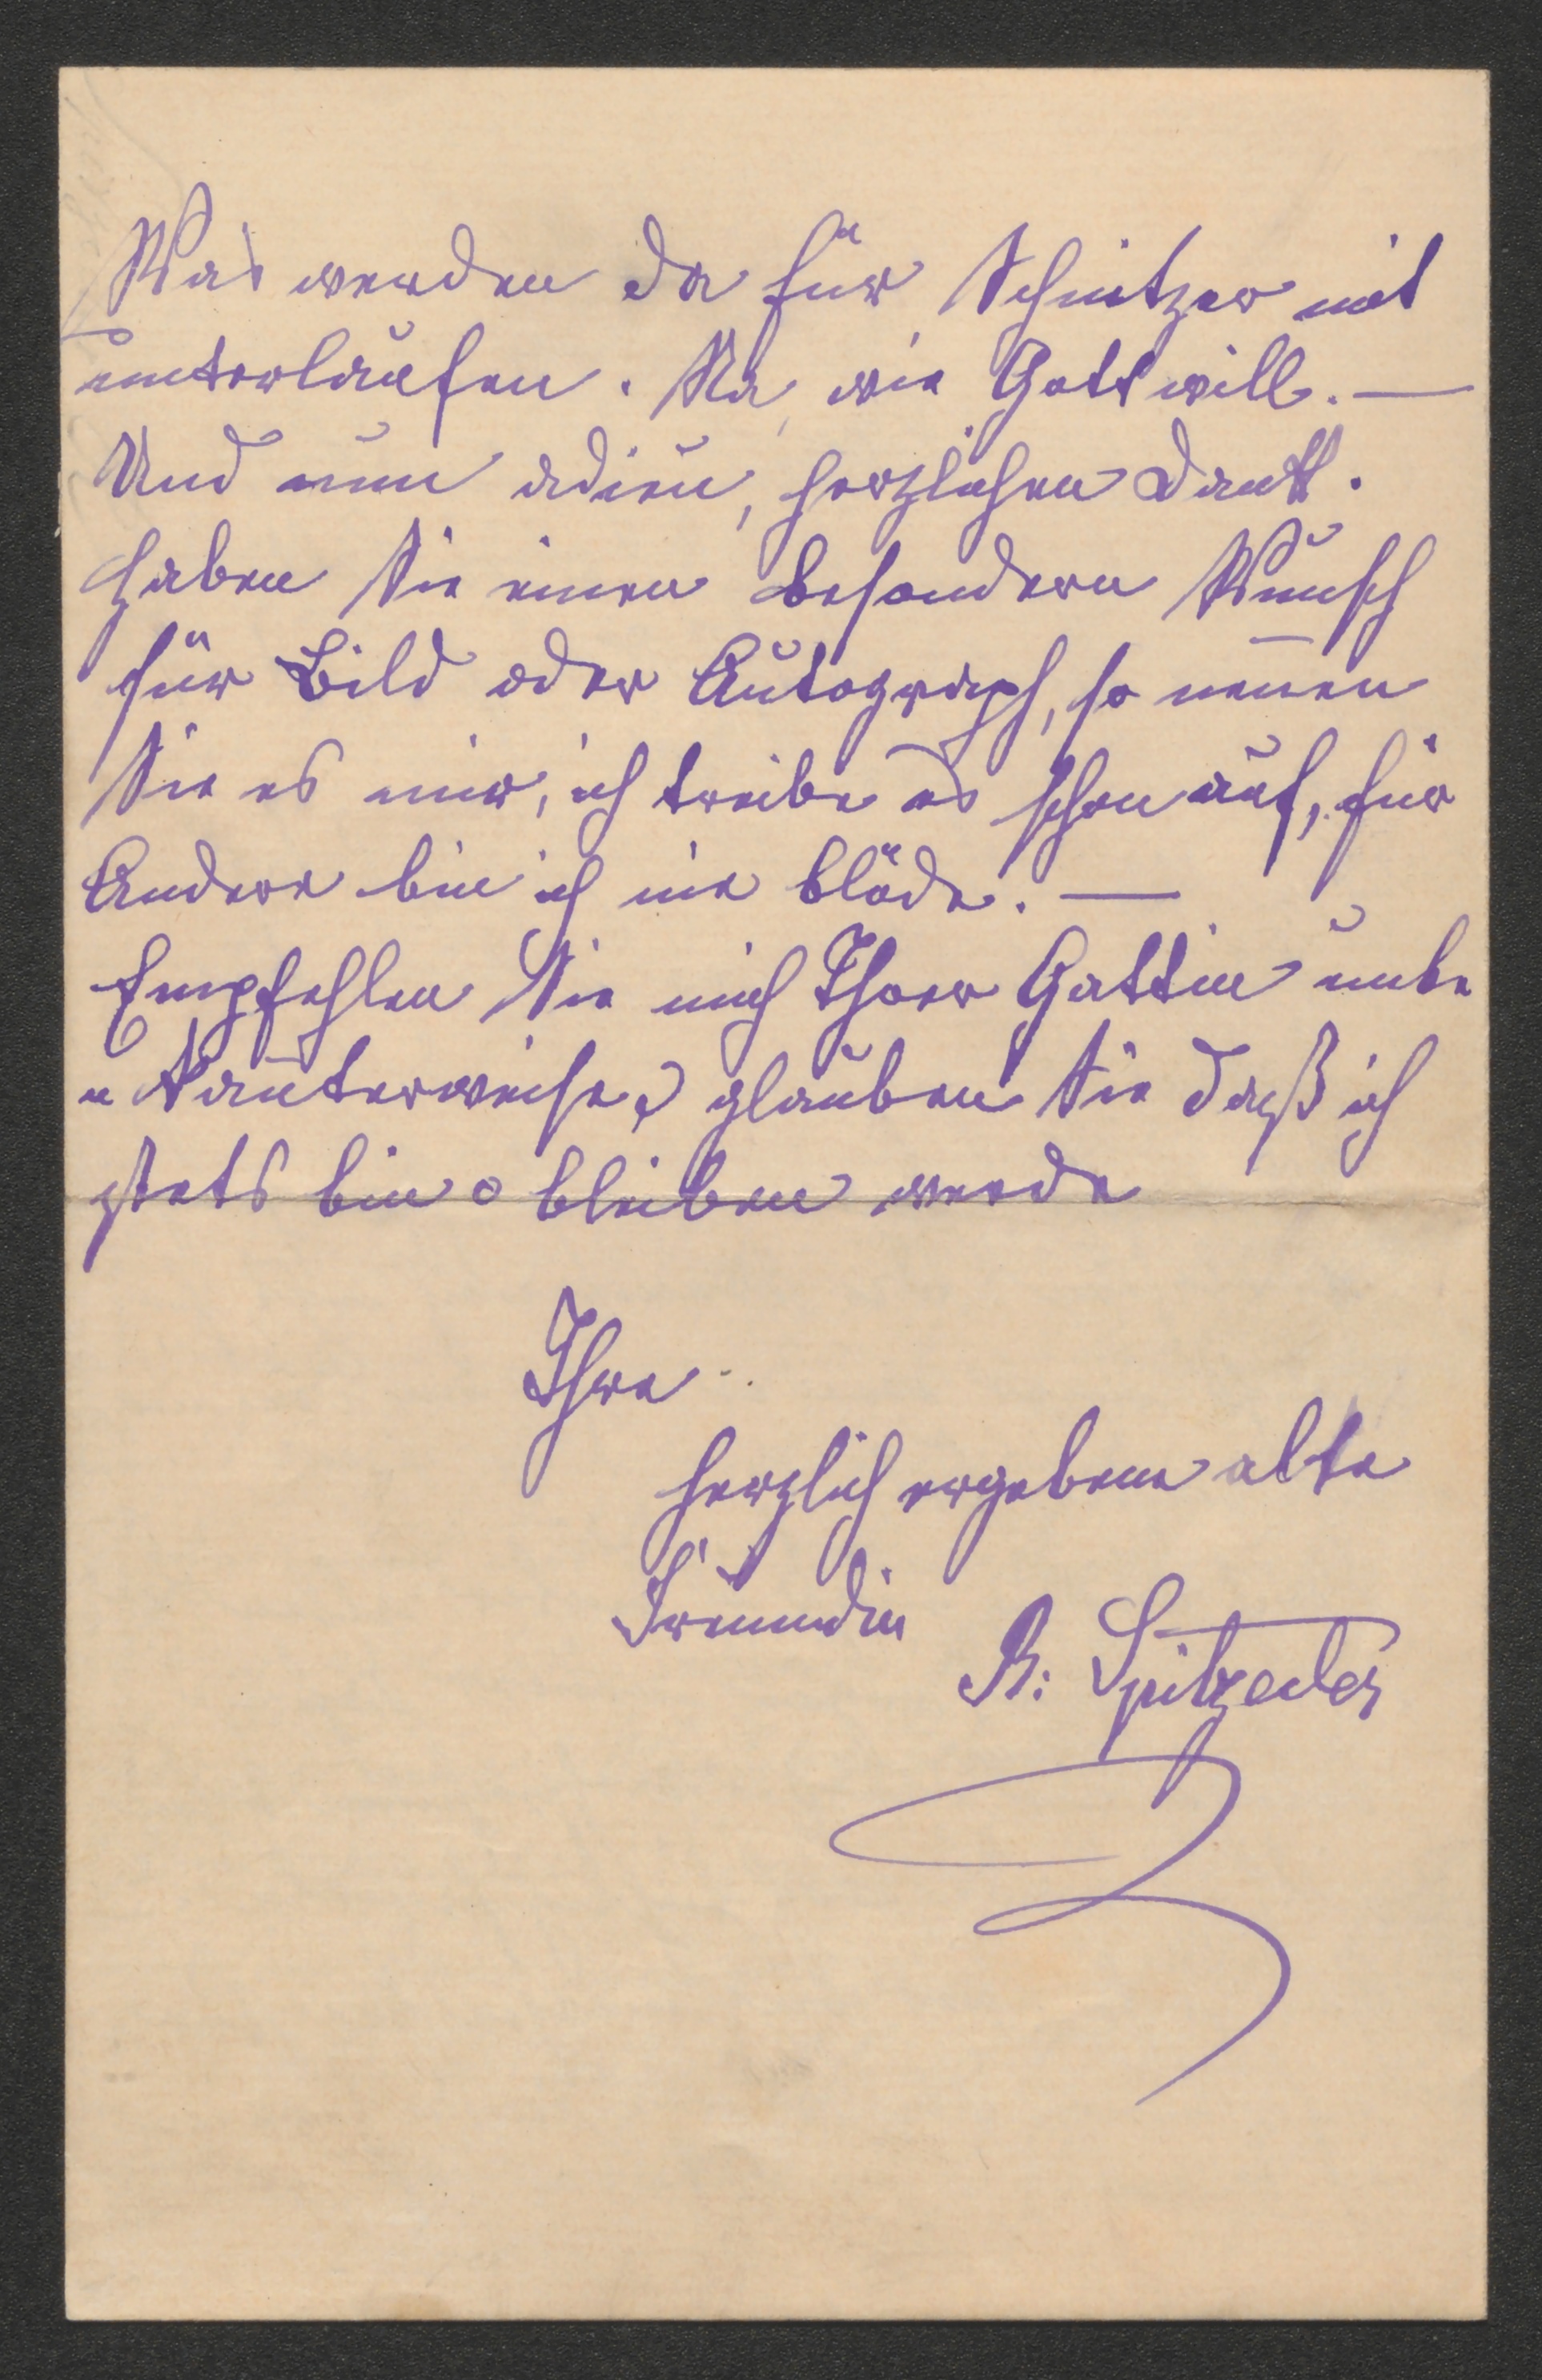 Was werden da für Schnitzer mit
unterlaufen. Na, wie Gott will. —
Und nun adieu, herzlichen Dank.
Haben Sie einen besondern Wunsch
für Bild oder Autograph, so nen̄en
Sie es mir, ich treibe es schon auf, für
Andere bin ich nie blöde. —
Empfehlen Sie mich Ihrer Gattin unbe
" kan̄terweise, glauben Sie daß ich
stets bin o bleiben werde
Ihre
herzlich ergebene alte
Freundin
B: Spitzeder